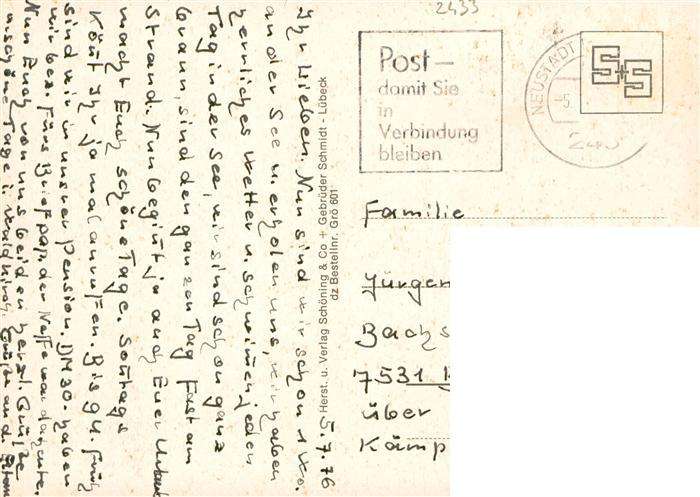 2433
Post —
damit Sie
in
Verbindung
bleiben
NEUSTADT
-5.
S+S
Familie
Jürgen
Bachs
7531
über
Kämp
Herst. u. Verlag Schöning & Co + Gebrüder Schmidt - Lübeck
dz Bestellnr. Grö 601
5.7.76
Ihr Lieben. Nun sind wir schon 1 Wo.
an der See u. erholen uns, wir haben
herrliches Wetter u. schwimmen jeden
Tag in der See, wir sind schon ganz
braun, sind den ganzen Tag fast am
Strand. Nun beginnt ja auch Euer Urlaub
macht Euch schöne Tage. Sontags
Könt Ihr ja mal anrufen. Bis 9 U. früh
sind wir in unsrer Pension. DM 30.- haben
wir bez. fürs
Nun Euch von uns beiden herzl. Grüße
schöne Tage